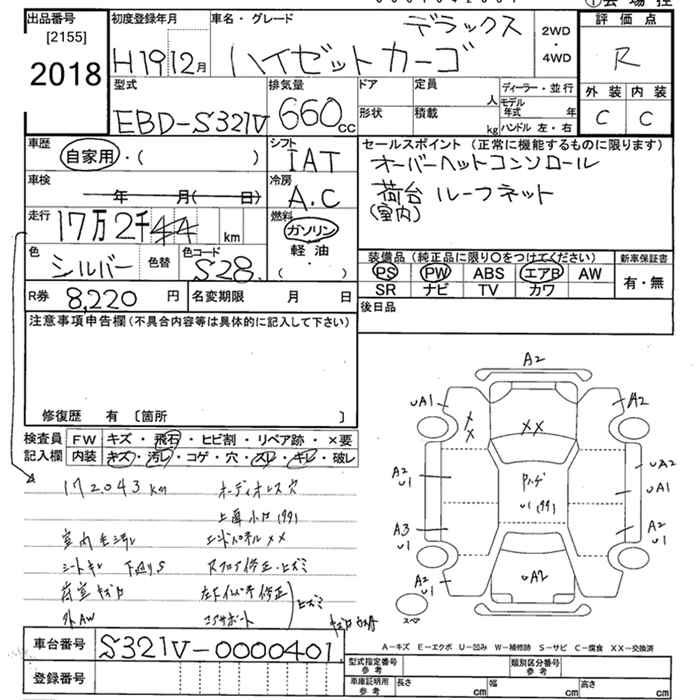 出品番号
[2155]
2018
初度登録年月
H19 12月
車名・グレード
デラックス
ハイゼットカーゴ
2WD
・
4WD
評価点
R
外装 内装
C C
型式
EBD-S321V
排気量
660cc
ドア
形状
定員
人
積載
kg
ディーラー・並行
モデル年式 年
ハンドル 左・右
車歴
自家用・( )
シフト
IAT
車検
年 月( 日)
冷房
A.C
走行
17万2千44 km
燃料
ガソリン
軽油
( ・ )
色
シルバー
色替
色コード
S28
R券 8,220 円
名変期限 月 日
セールスポイント(正常に機能するものに限ります)
オーバーヘットコンソロール
荷台 ルーフネット
(室内)
装備品(純正品に限り○をつけてください)
PS PW ABS エアB AW
SR ナビ TV カワ
新車保証書
有・無
後日品
注意事項申告欄(不具合内容等は具体的に記入して下さい)
修復歴 有 〔箇所 〕
検査員記入欄
FW キズ・飛石・ヒビ割・リペア跡・×要
内装 キズ・汚レ・コゲ・穴・スレ・キレ・破レ
172043km
オーディオレス穴
エンドパネルXX
外AW
コアサポート
A2
UA1
A2
XX
XX
A2
U1
UA2
UA1
U1
A3
U1
A2
U1
UA2
A2
U1
スペア
車台番号
S321V-0000401
登録番号
A-キズ E-エクボ U-凹み W-補修跡 S-サビ C-腐食 XX-交換済
型式指定番号
参考
類別区分番号
参考
車庫証明用
参考
長さ cm
幅 cm
高さ cm